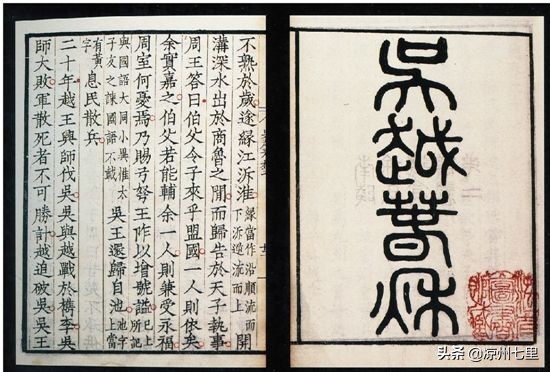 吳越春秋
不熟於歲遂緣江泝淮緣當作沿順流而下泝逆流而上開
溝深水出於商魯之間而歸告於天子執事
周王答曰伯父令子來乎盟國一人則依矣
余實嘉之伯父若能輔余一人則兼受永福
周室何憂焉乃賜弓弩王阼以增號謚已上所記
與國語大同小異惟太子友之諫國語不載吳王還歸自池池字上當
有黃字息民散兵
二十年越王興師伐吳吳與越戰於檇李吳
師大敗軍散死者不可勝計越追破吳吳王
头条 @凉州七里